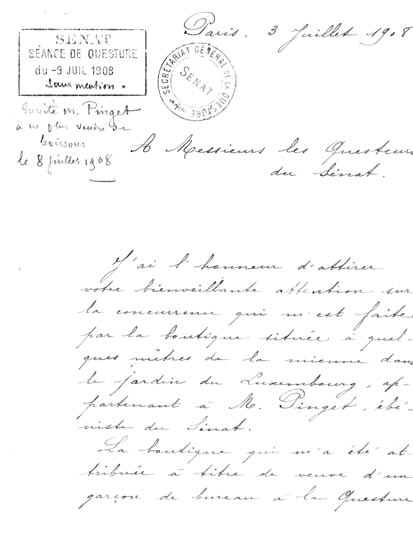 Paris. 3 Juillet 1908
SENAT
SÉANCE DE QUESTURE
du -9 JUIL 1908
Sans mention.
SECRÉTARIAT GÉNÉRAL DE LA QUESTURE
SENAT
Invité M. Pinget
à ne plus vendre de
boissons
le 8 juillet 1908
A Messieurs les Questeurs
du Sénat.
J'ai l'honneur d'attirer
votre bienveillante attention sur
la concurrence qui m'est faite
par la boutique située à quel-
ques mètres de la mienne dans
le jardin du Luxembourg, ap-
partenant à M. Pinget, ébé-
niste du Sénat.
La boutique qui m'a été at-
tribuée à titre de veuve d'un
garçon de bureau à la Questure